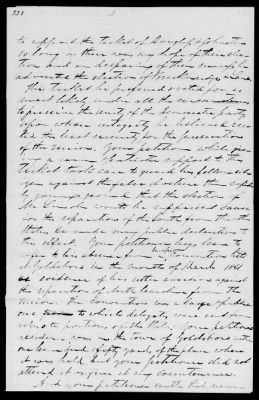 331
3
to support the ticket of Douglas & Johnston
so long as there was any hope of their elec-
tion and on despairing of their success he
advocated the election of Breckinridge & Lane
This ticket he preferred & voted for as
most likely under all the circumstances
to preserve the unity of the democratic party
upon whose integrity he believed res-
ted the best security for the preservation
of the Union. Your petitioner while giv-
ing a warm support to this
ticket took care to guard his fellow citi-
zens against the doctrine then
gaining ground that the election of
Mr Lincoln would be a sufficient cause
for the separation of the South from the other
States. He made many public declarations to
this effect. Your petitioner begs leave to
refer to his absence from the Convention held
at Goldsboro in the month of March 1861
as evidence of his utter aversion against
the separation of North Carolina from the
Union. The Convention was a large
one to which delegates were sent from
remote portions of the State; Your petitioner
resides in the town of Goldsboro within
one hundred & fifty yards of the place where
it was held and your petitioner did not
attend it or give it any countenance.
And your petitioner